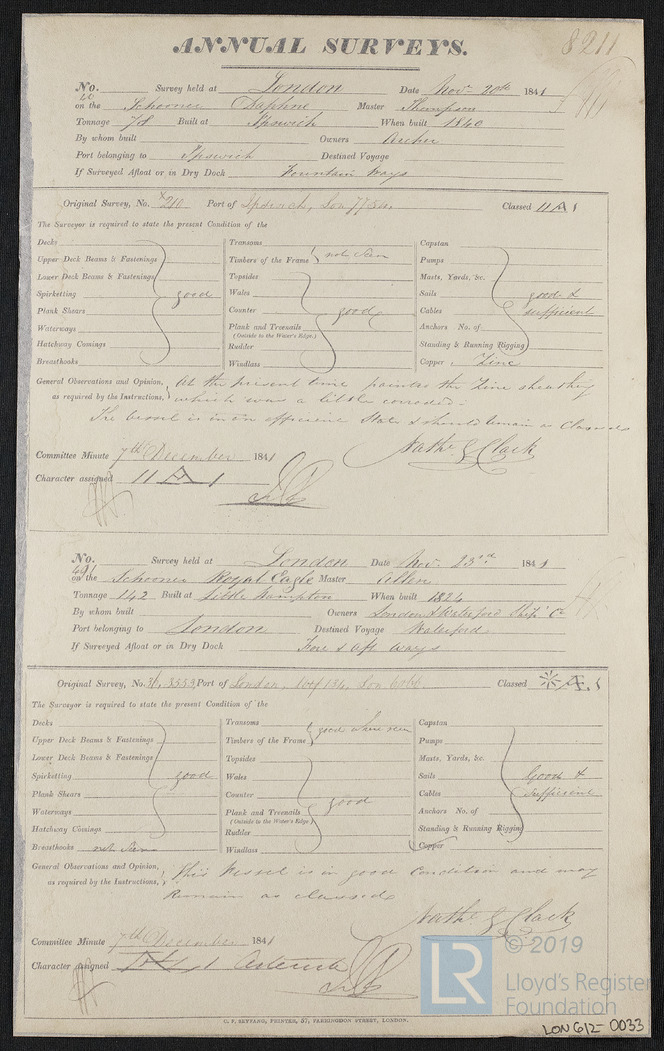 8211
ANNUAL SURVEYS.
No. 40 Survey held at London Date Nov. 20th 1841
on the Schooner Daphne Master Thompson
Tonnage 78 Built at Ipswich When built 1840
By whom built Owners Archer
Port belonging to Ipswich Destined Voyage
If Surveyed Afloat or in Dry Dock Fountain Ways
Original Survey, No. 210 Port of Ipswich, Lon Classed 11 A 1
The Surveyor is required to state the present Condition of the
Decks
Upper Deck Beams & Fastenings
Lower Deck Beams & Fastenings
Spirketting good
Plank Shears
Waterways
Hatchway Comings
Breasthooks
Transoms
Timbers of the Frame not seen
Topsides
Wales
Counter good
Plank and Treenails
(Outside to the Water's Edge.)
Rudder
Windlass
Capstan
Pumps
Masts, Yards, &c.
Sails good &
Cables sufficient
Anchors No. of
Standing & Running Rigging
Copper Zinc
General Observations and Opinion, At the present time painted the Zine sheathing
as required by the Instructions, which was a little corroded.
The vessel is in an efficient State & should remain as Classed
Nathl G Clark
Committee Minute 7th December 1841
Character assigned 11 A 1
No. 491 Survey held at London Date Nov. 23rd 1841
on the Schooner Royal Eagle Master Sillen
Tonnage 142 Built at Little Hampton When built 1824
By whom built Owners London & Waterford Ship Co
Port belonging to London Destined Voyage Waterford
If Surveyed Afloat or in Dry Dock Fore & Aft Ways
Original Survey, No. 3559, Port of London Classed Æ 1
The Surveyor is required to state the present Condition of the
Decks
Upper Deck Beams & Fastenings
Lower Deck Beams & Fastenings
Spirketting good
Plank Shears
Waterways
Hatchway Comings
Breasthooks not seen
Transoms
Timbers of the Frame good where seen
Topsides
Wales
Counter good
Plank and Treenails
(Outside to the Water's Edge.)
Rudder
Windlass
Capstan
Pumps
Masts, Yards, &c.
Sails Good &
Cables sufficient
Anchors No. of
Standing & Running Rigging
Copper
General Observations and Opinion, This Vessel is in good Condition and may
as required by the Instructions, Remain as classed
Nathl G Clark
Committee Minute 7th December 1841
Character assigned Æ 1 Asterisk
C. F. SEYFANG, PRINTER, 57, FARRINGDON STREET, LONDON.
LR © 2019
Lloyd's Register
Foundation
LON 612-0033